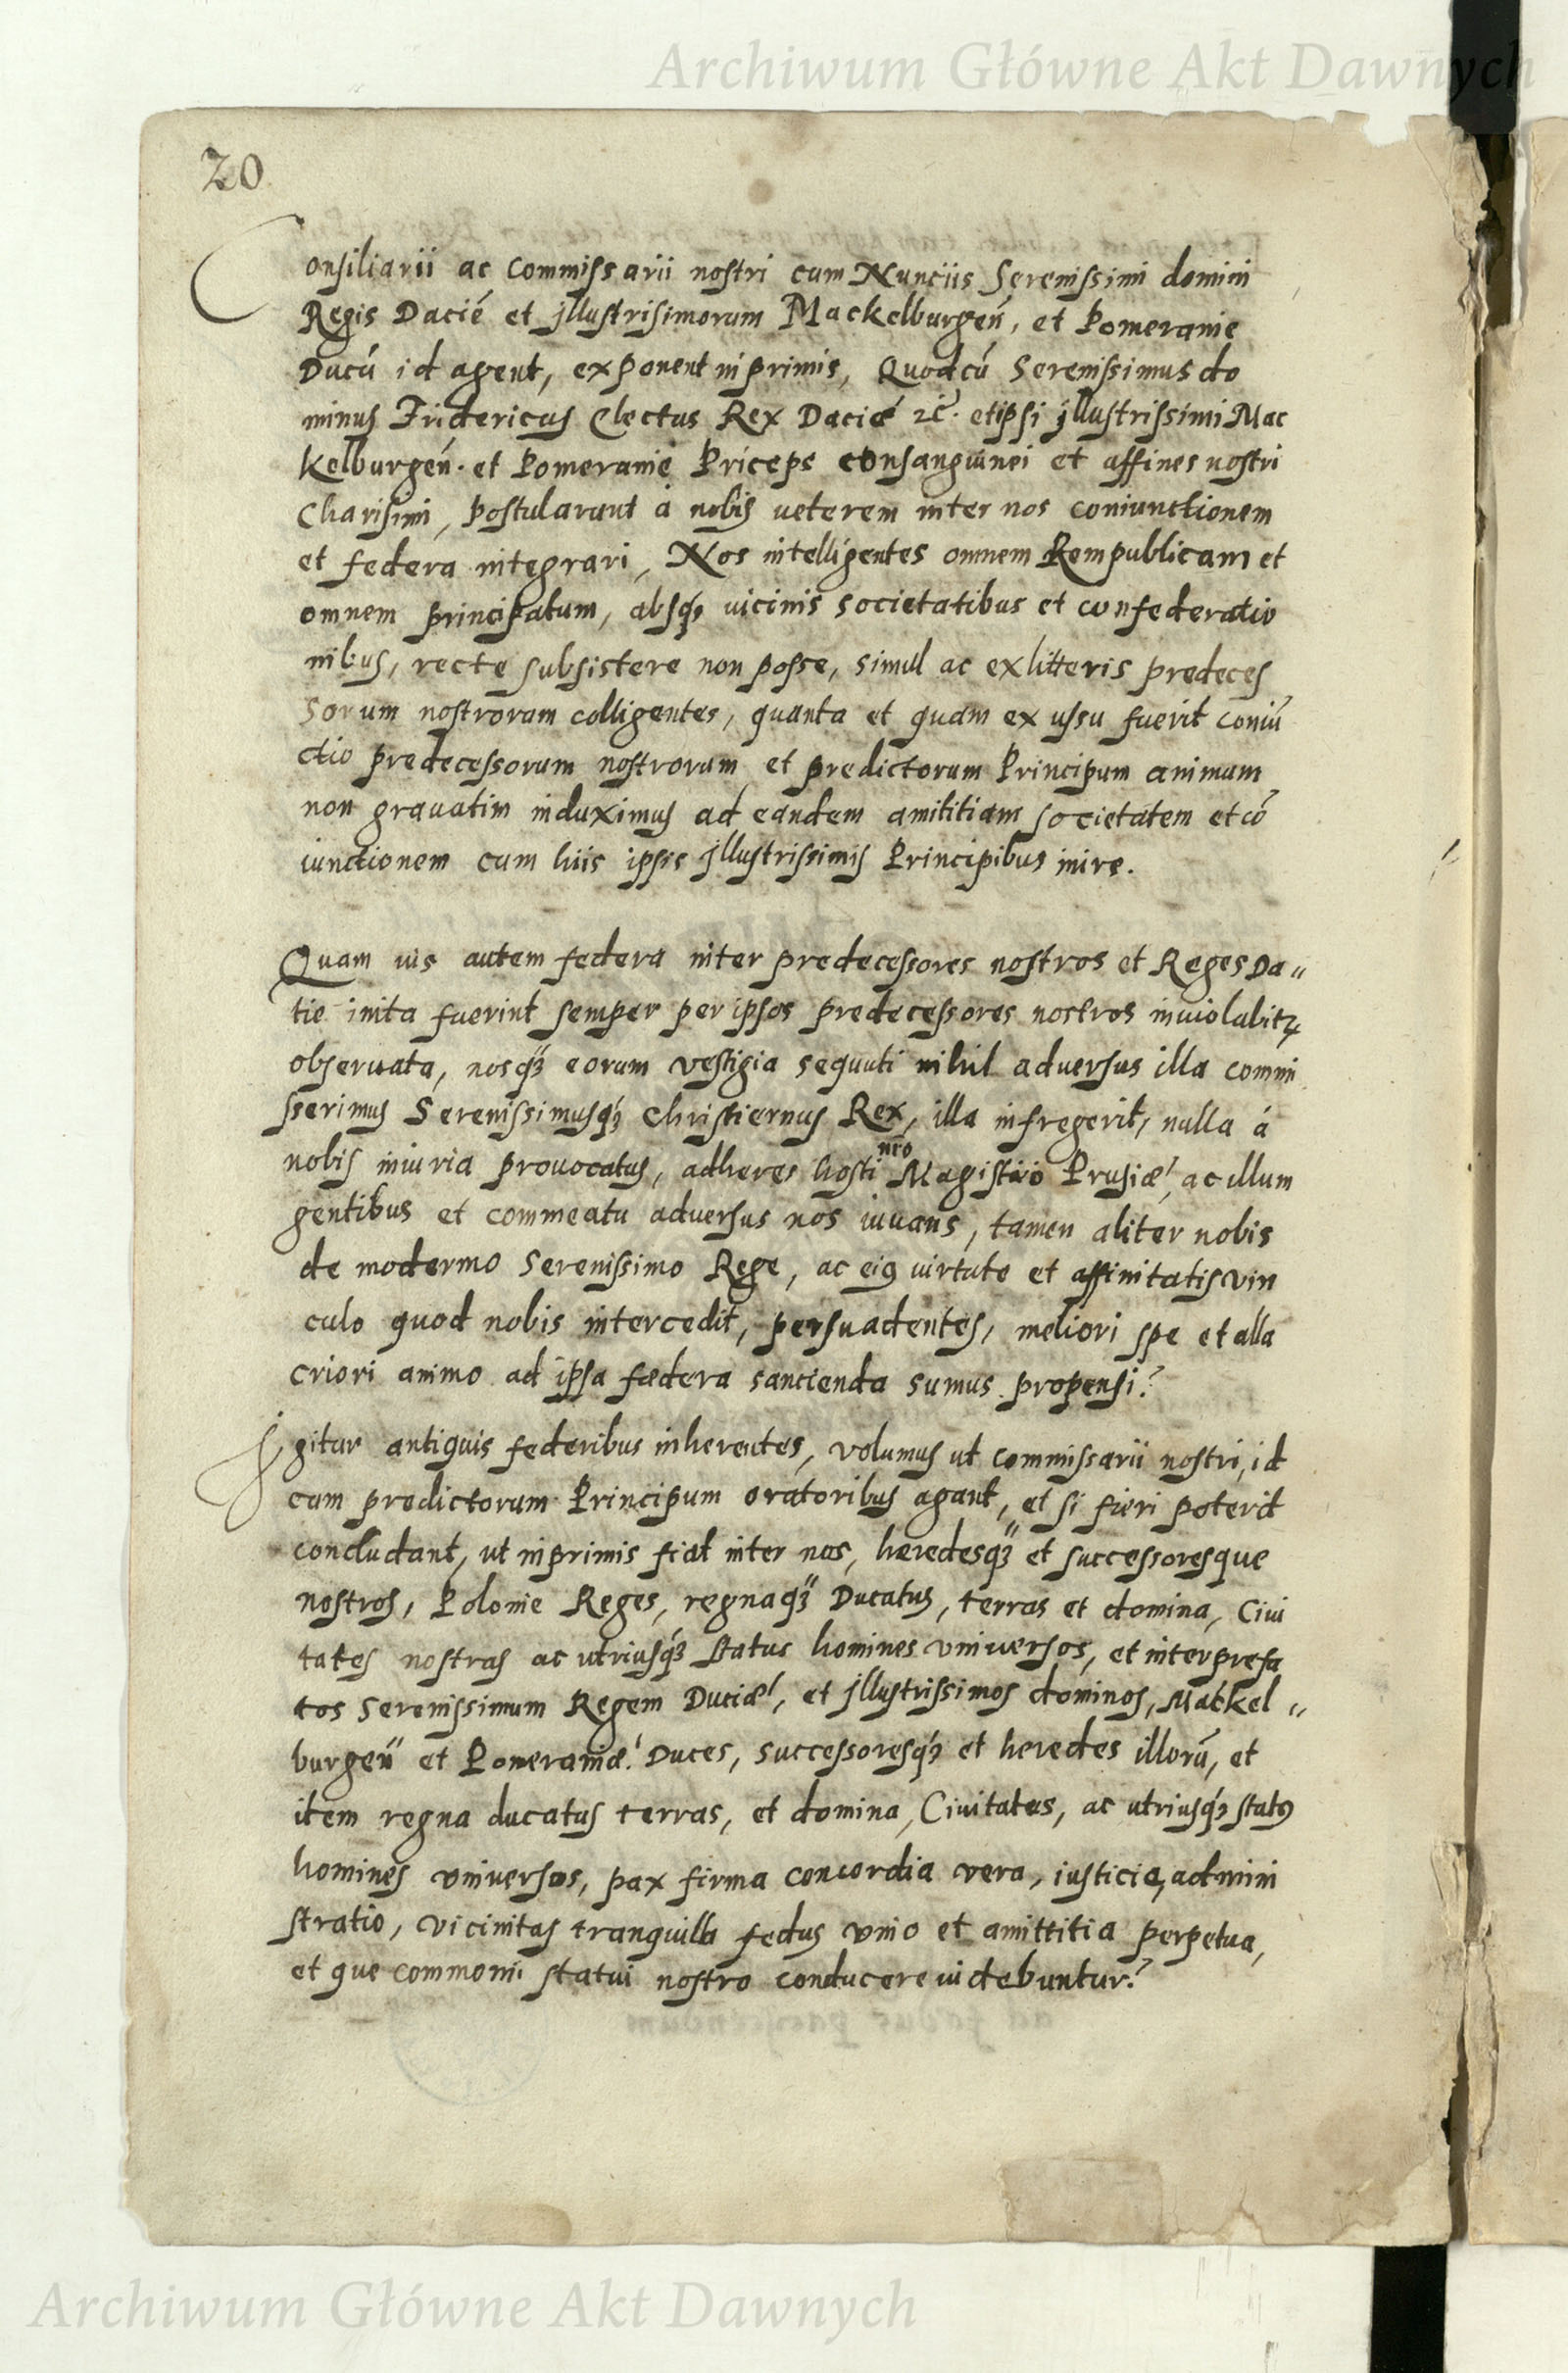 Archiwum Główne Akt Dawnych
20
Consiliarii ac Commissarii nostri cum Nunciis Serenissimi domini
Regis Dacié et jllustrisimorum Mackelburgeń, et Pomeranie
Ducū id agent, exponent inprimis, Quodcū Serenissimus do
minus Fridericus Electus Rex Dacié ꝛc̄. etipsi jllustrissimi Mac
kelburgeń. et Pomeranie Príceps consanguinei et affines nostri
Charisimi, postularunt á nobis ueterem inter nos coniunctionem
et federa integrari, Nos intelligentes omnem Rempublicam et
omnem principatum, absqꝫ uicinis societatibus et confederatio
nibus, recte subsistere non posse, simul ac exlitteris predeces
sorum nostrorum colligentes, quanta et quam ex ussu fuerit coniū
ctio predecessorum nostrorum et predictorum Principum animum
non grauatim induximus ad eandem amititiam societatem et cō
iunctionem cum hiis ipsis jllustrissimis Principibus inire.
Quam uis autem federa inter predecessores nostros et Reges Da„
tie inita fuerint semper per ipsos predecessores nostros inuiolabitꝝ
obseruata, nosqꝫ eorum vestigia sequuti nihil aduersus illa commi
sserimus Serenissimusqꝫ Christiernus Rex, illa infregerit, nulla á
nobis iniuria prouocatus, adheres hosti nr̄o Magistro Prusiæ, ac illum
gentibus et commeatu aduersus nos iuuans, tamen aliter nobis
de modermo Serenissimo Rege, ac eiꝯ uirtute et affinitatis vin
culo quod nobis intercedit, persuadentes, meliori spe et alla
criori animo ad ipsa fædera sancienda sumus propensi?
Igitur antiquis federibus inherentes, volumus ut commissarii nostri, id
cum predictorum Principum oratoribus agant, et si fieri poterit
concludant, ut inprimis fiat inter nos, hæredesqꝫ et successoresque
nostros, Polonie Reges, regnaqꝫ Ducatus, terras et domina, Ciui
tates nostras ac utriusqꝫ status homines vniuersos, et inter prefa
tos Serenissimum Regem Daciæ, et jllustrissimos dominos, Mackel„
burgeń et Pomeraniæ Duces, successoresqꝫ et heredes illorū, et
item regna ducatus terras, et domina, Ciuitates, ac utriusqꝫ statꝯ
homines vniuersos, pax firma concordia vera, iusticie, admini
stratio, vicinitas tranquilla fedus vnio et amittitia perpetua,
et que commomi statui nostro conducere uidebuntur?
Archiwum Główne Akt Dawnych